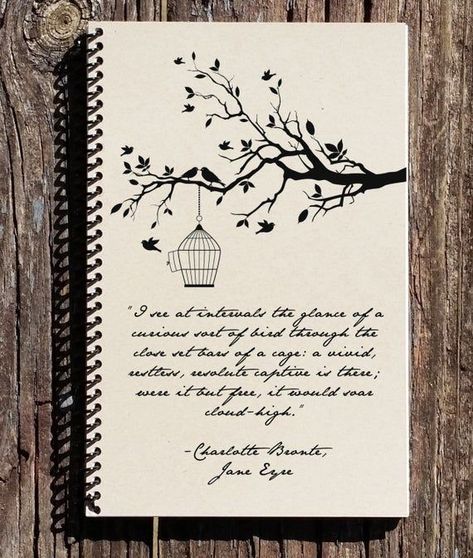 "I see at intervals the glance of a
curious sort of bird through the
close set bars of a cage: a vivid,
restless, resolute captive is there;
were it but free, it would soar
cloud-high."
-Charlotte Bronte,
Jane Eyre